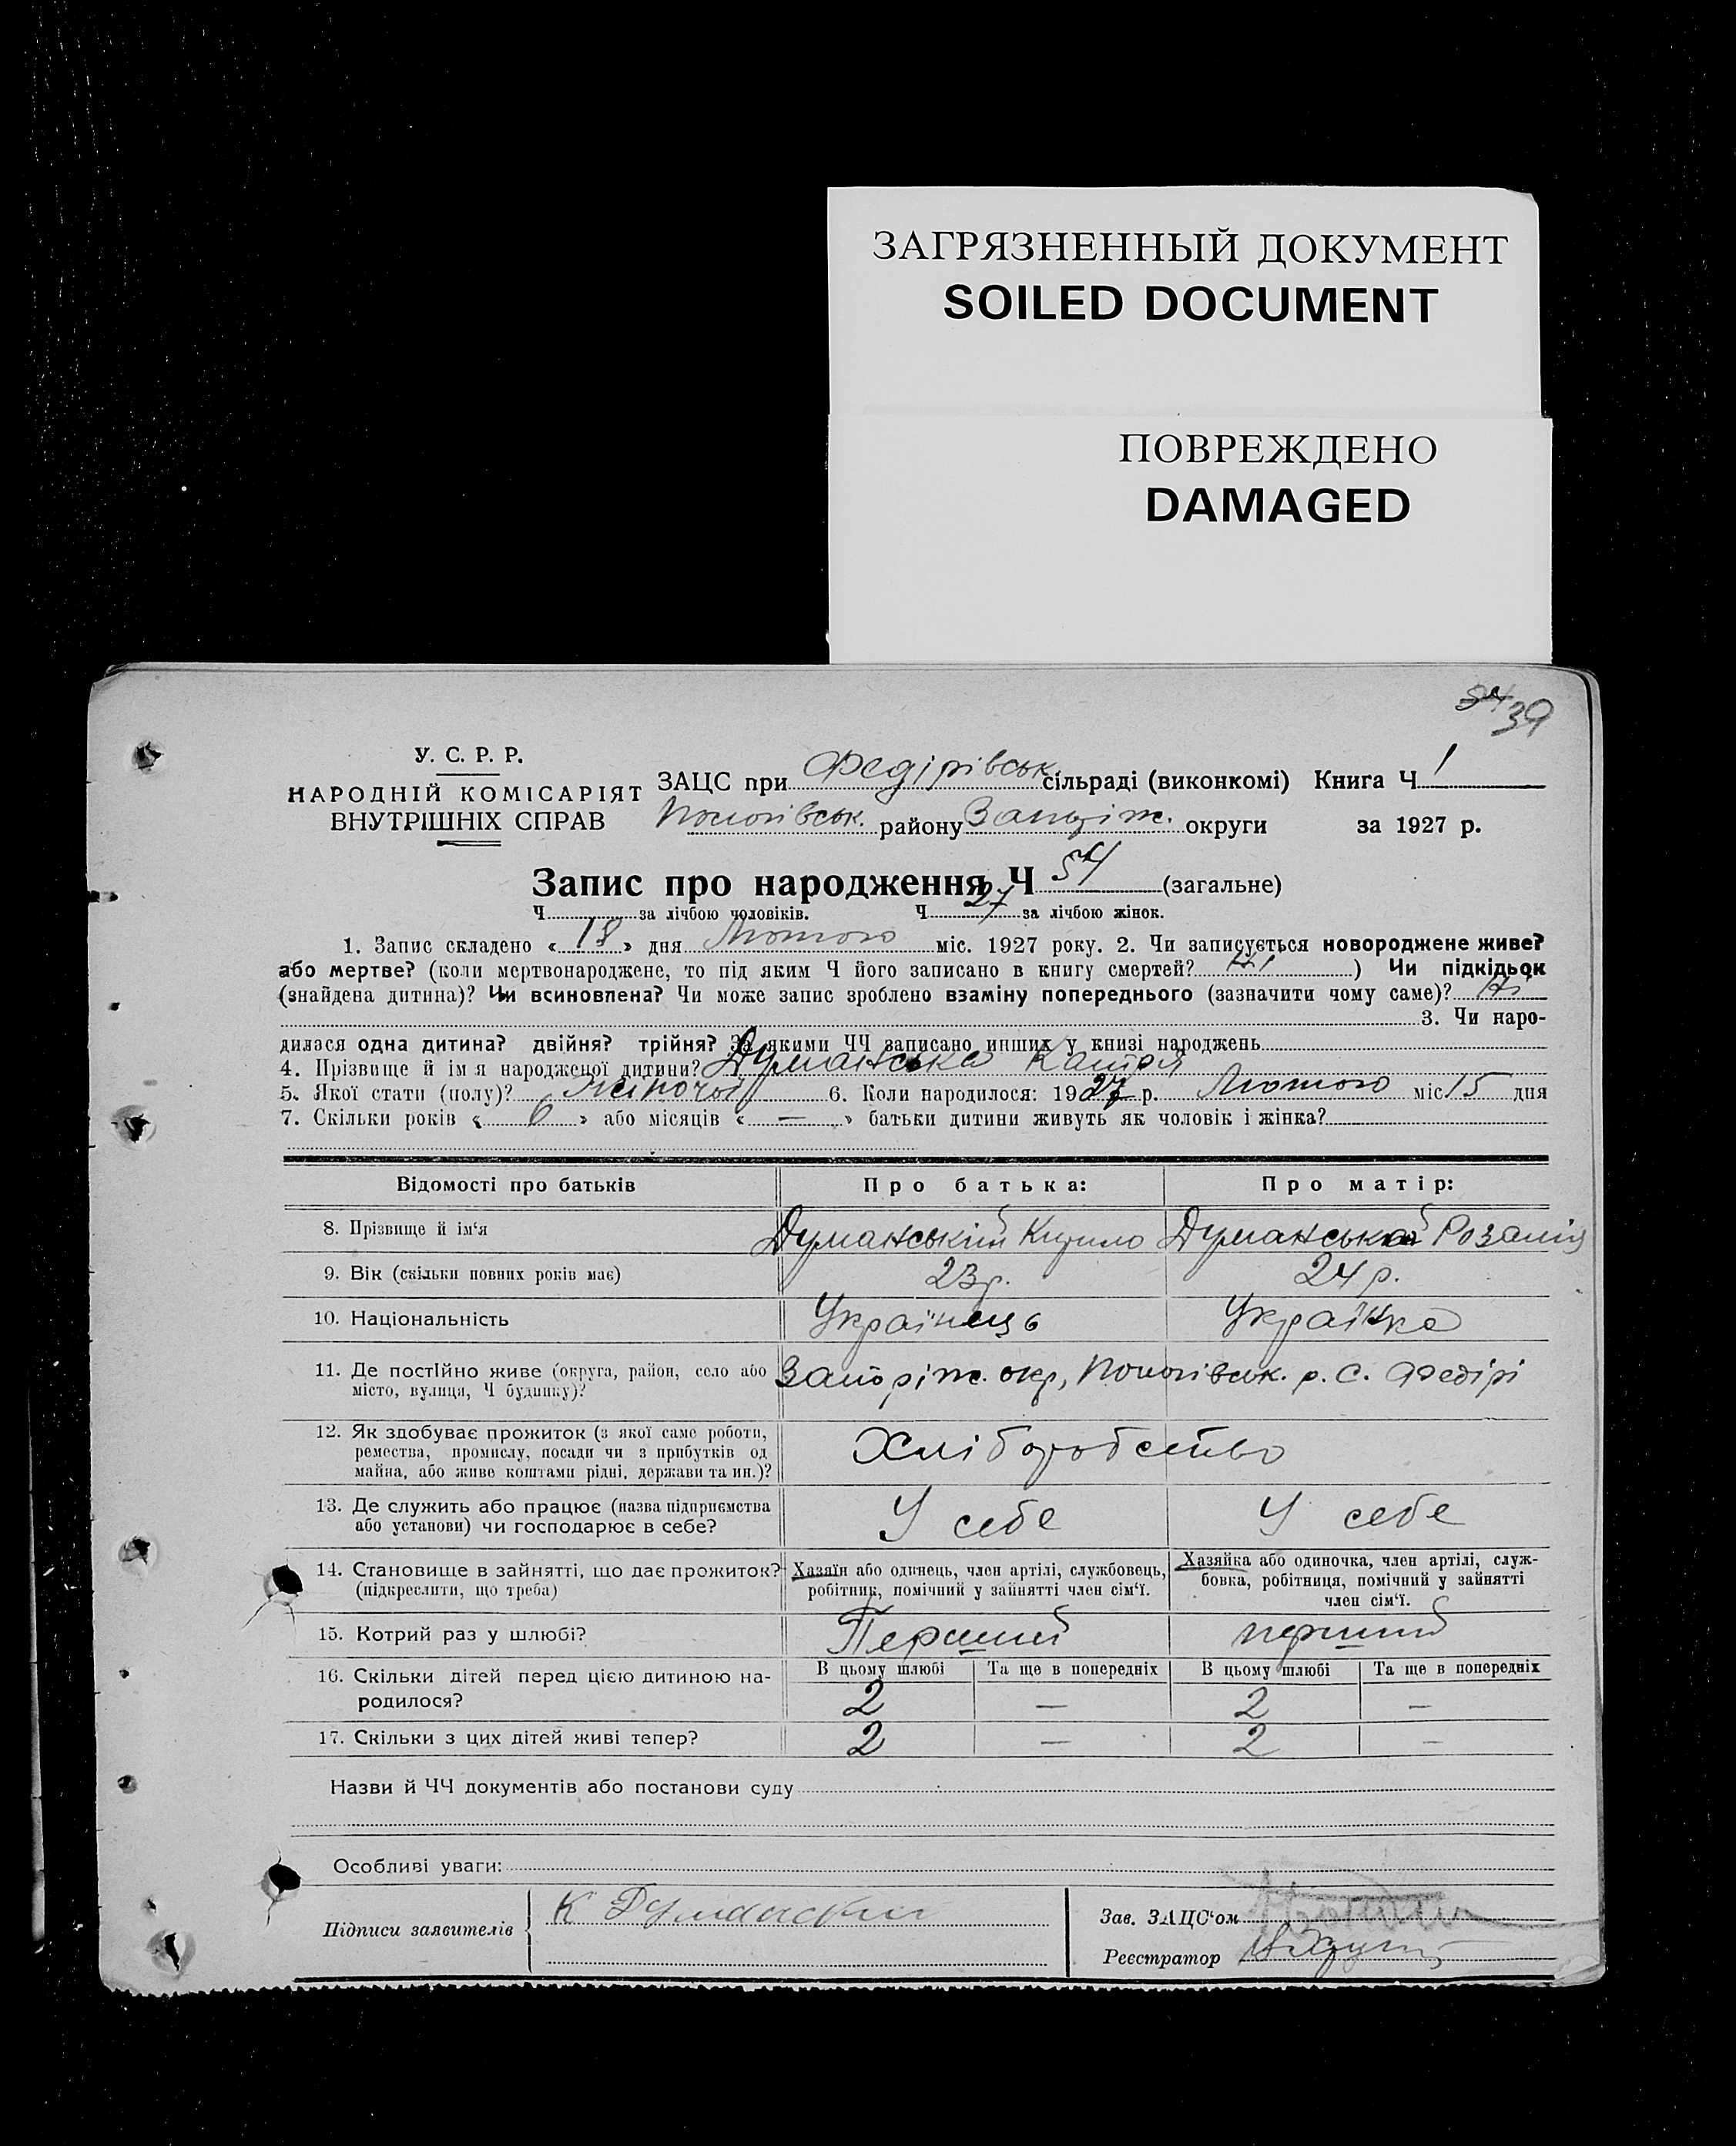 ЗАГРЯЗНЕННЫЙ ДОКУМЕНТ
SOILED DOCUMENT
ПОВРЕЖДЕНО
DAMAGED
34 39
У. С. Р. Р.
НАРОДНІЙ КОМІСАРІЯТ
ВНУТРІШНІХ СПРАВ
ЗАЦС при Федірівськ. сільраді (виконкомі) Книга Ч 1
Пологівськ. району Запоріж. округи за 1927 р.
Запис про народження Ч 54 (загальне)
Ч за лічбою чоловіків. Ч 27 за лічбою жінок.
1. Запис складено « 18 » дня Лютого міс. 1927 року. 2. Чи записується новороджене живе?
або мертве? (коли мертвонароджене, то під яким Ч його записано в книгу смертей? Ні ) Чи підкідьок
(знайдена дитина)? Чи всиновлена? Чи може запис зроблено взаміну попереднього (зазначити чому саме)? Ні
3. Чи наро-
дилася одна дитина? двійня? трійня? За якими ЧЧ записано инших у книзі народжень
4. Прізвище й ім я народженої дитини? Думанська Катря
5. Якої стати (полу)? жіночої 6. Коли народилося: 1927 р. Лютого міс 15 дня
7. Скільки років « 6 » або місяців « — » батьки дитини живуть як чоловік і жінка?
Відомості про батьків Про батька: Про матір:
8. Прізвище й ім‘я Думанський Кирило Думанська Розалія
9. Вік (скільки повних років має) 23 р. 24 р.
10. Національність Українець Українка
11. Де постійно живе (округа, район, село або Запоріж. окр, Пологівськ. р. с. Федірі
місто, вулиця, Ч будинку)?
12. Як здобуває прожиток (з якої саме роботи, Хліборобство
ремества, промислу, посади чи з прибутків од
майна, або живе коштами рідні, держави та ин.)?
13. Де служить або працює (назва підприємства У себе У себе
або установи) чи господарює в себе?
14. Становище в зайнятті, що дає прожиток? Хазяїн або одинець, член артілі, службовець, Хазяйка або одиночка, член артілі, служ-
(підкреслити, що треба) робітник, помічний у зайнятті член сім‘ї. бовка, робітниця, помічний у зайнятті
член сім‘ї.
15. Котрий раз у шлюбі? Перший перший
16. Скільки дітей перед цією дитиною на- В цьому шлюбі Та ще в попередніх В цьому шлюбі Та ще в попередніх
родилося? 2 — 2 —
17. Скільки з цих дітей живі тепер? 2 — 2 —
Назви й ЧЧ документів або постанови суду
Особливі уваги:
Підписи заявителів К Думанский
Зав. ЗАЦС‘ом
Реєстратор